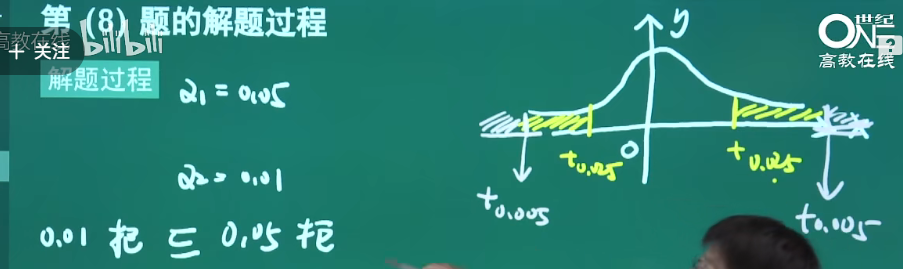 第（8）题的解题过程
高教在线
bilibili
+ 关注
解题过程
α₁ = 0.05
α₂ = 0.01
0.01 拒 ⊆ 0.05 拒
y
O
t₀.₀₂₅
t₀.₀₂₅
t₀.₀₀₅
t₀.₀₀₅
世纪
ONE
高教在线
?